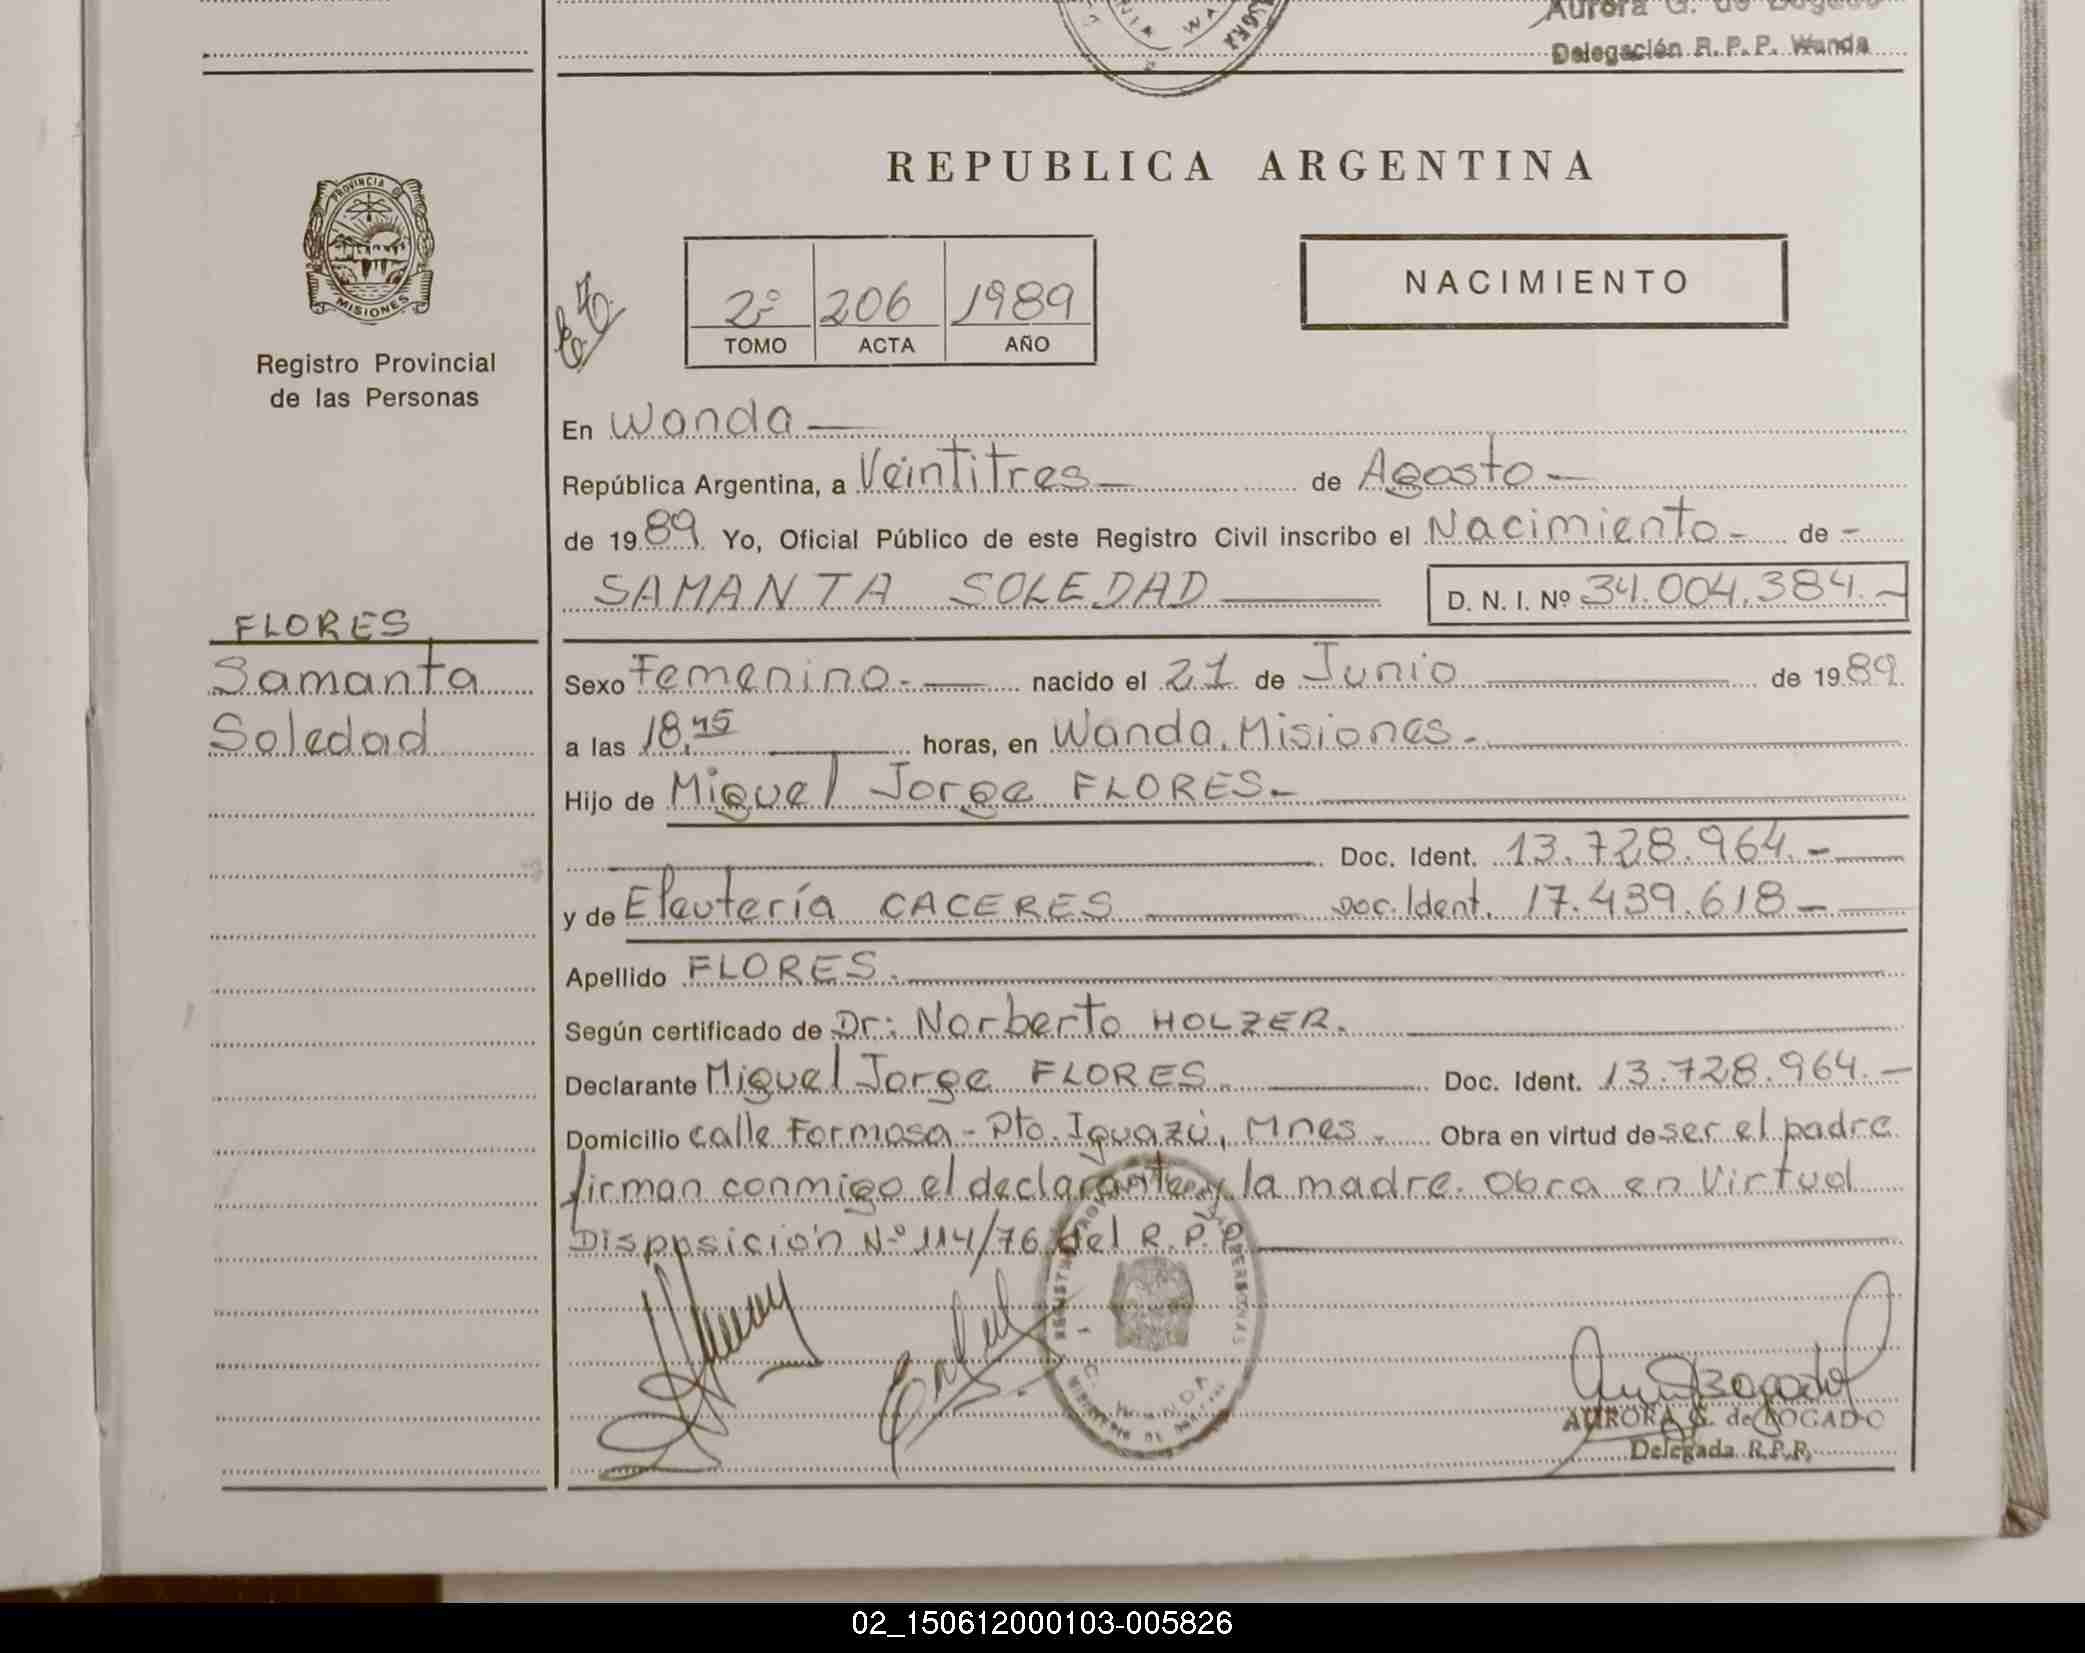 Aurora G. de Bogado
Delegación R. P. P. Wanda
PROVINCIA
MISIONES
Registro Provincial
de las Personas
REPUBLICA ARGENTINA
2º 206 1989
TOMO ACTA AÑO
NACIMIENTO
En Wanda
República Argentina, a Veintitres de Agosto
de 1989 Yo, Oficial Público de este Registro Civil inscribo el Nacimiento de
SAMANTA SOLEDAD D. N. I. Nº 34.004.384.-
FLORES
Samanta
Soledad
Sexo Femenino.- nacido el 21 de Junio de 1989
a las 18,45 horas, en Wanda, Misiones.-
Hijo de Miguel Jorge FLORES.-
Doc. Ident. 13.728.964.-
y de Eleutería CACERES Doc. Ident. 17.439.618-
Apellido FLORES.
Según certificado de Dr: Norberto HOLZER.
Declarante Miguel Jorge FLORES. Doc. Ident. 13.728.964.-
Domicilio calle Formosa - Pto. Iguazú, Mnes. Obra en virtud de ser el padre
firman conmigo el declarante y la madre. Obra en Virtud
Disposición Nº 114/76 del R. P. P.
WANDA
AURORA G. de BOGADO
Delegada R.P.P.
02_150612000103-005826